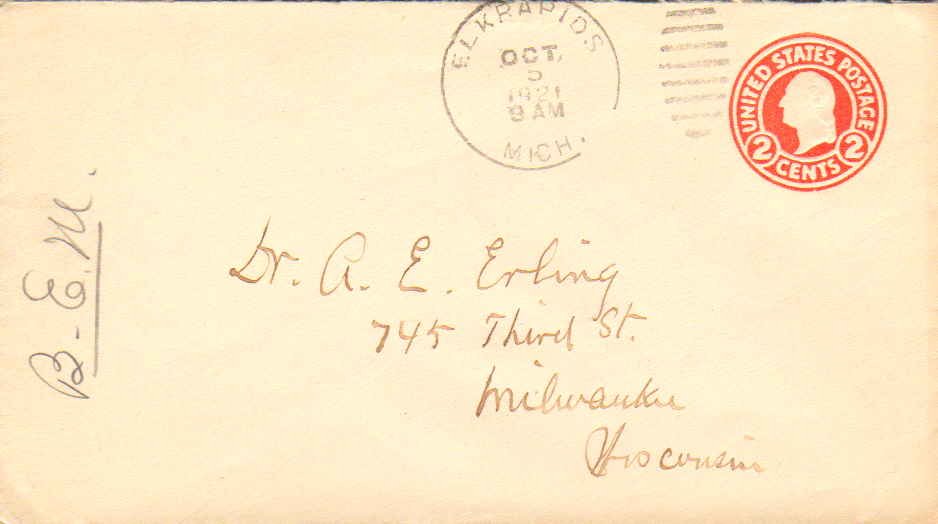 ELK RAPIDS
OCT.
5
1921
9 AM
MICH.
UNITED STATES POSTAGE
2 CENTS 2
B-E.M.
Dr. A. E. Erling
745 Third St.
Milwaukee
Wisconsin